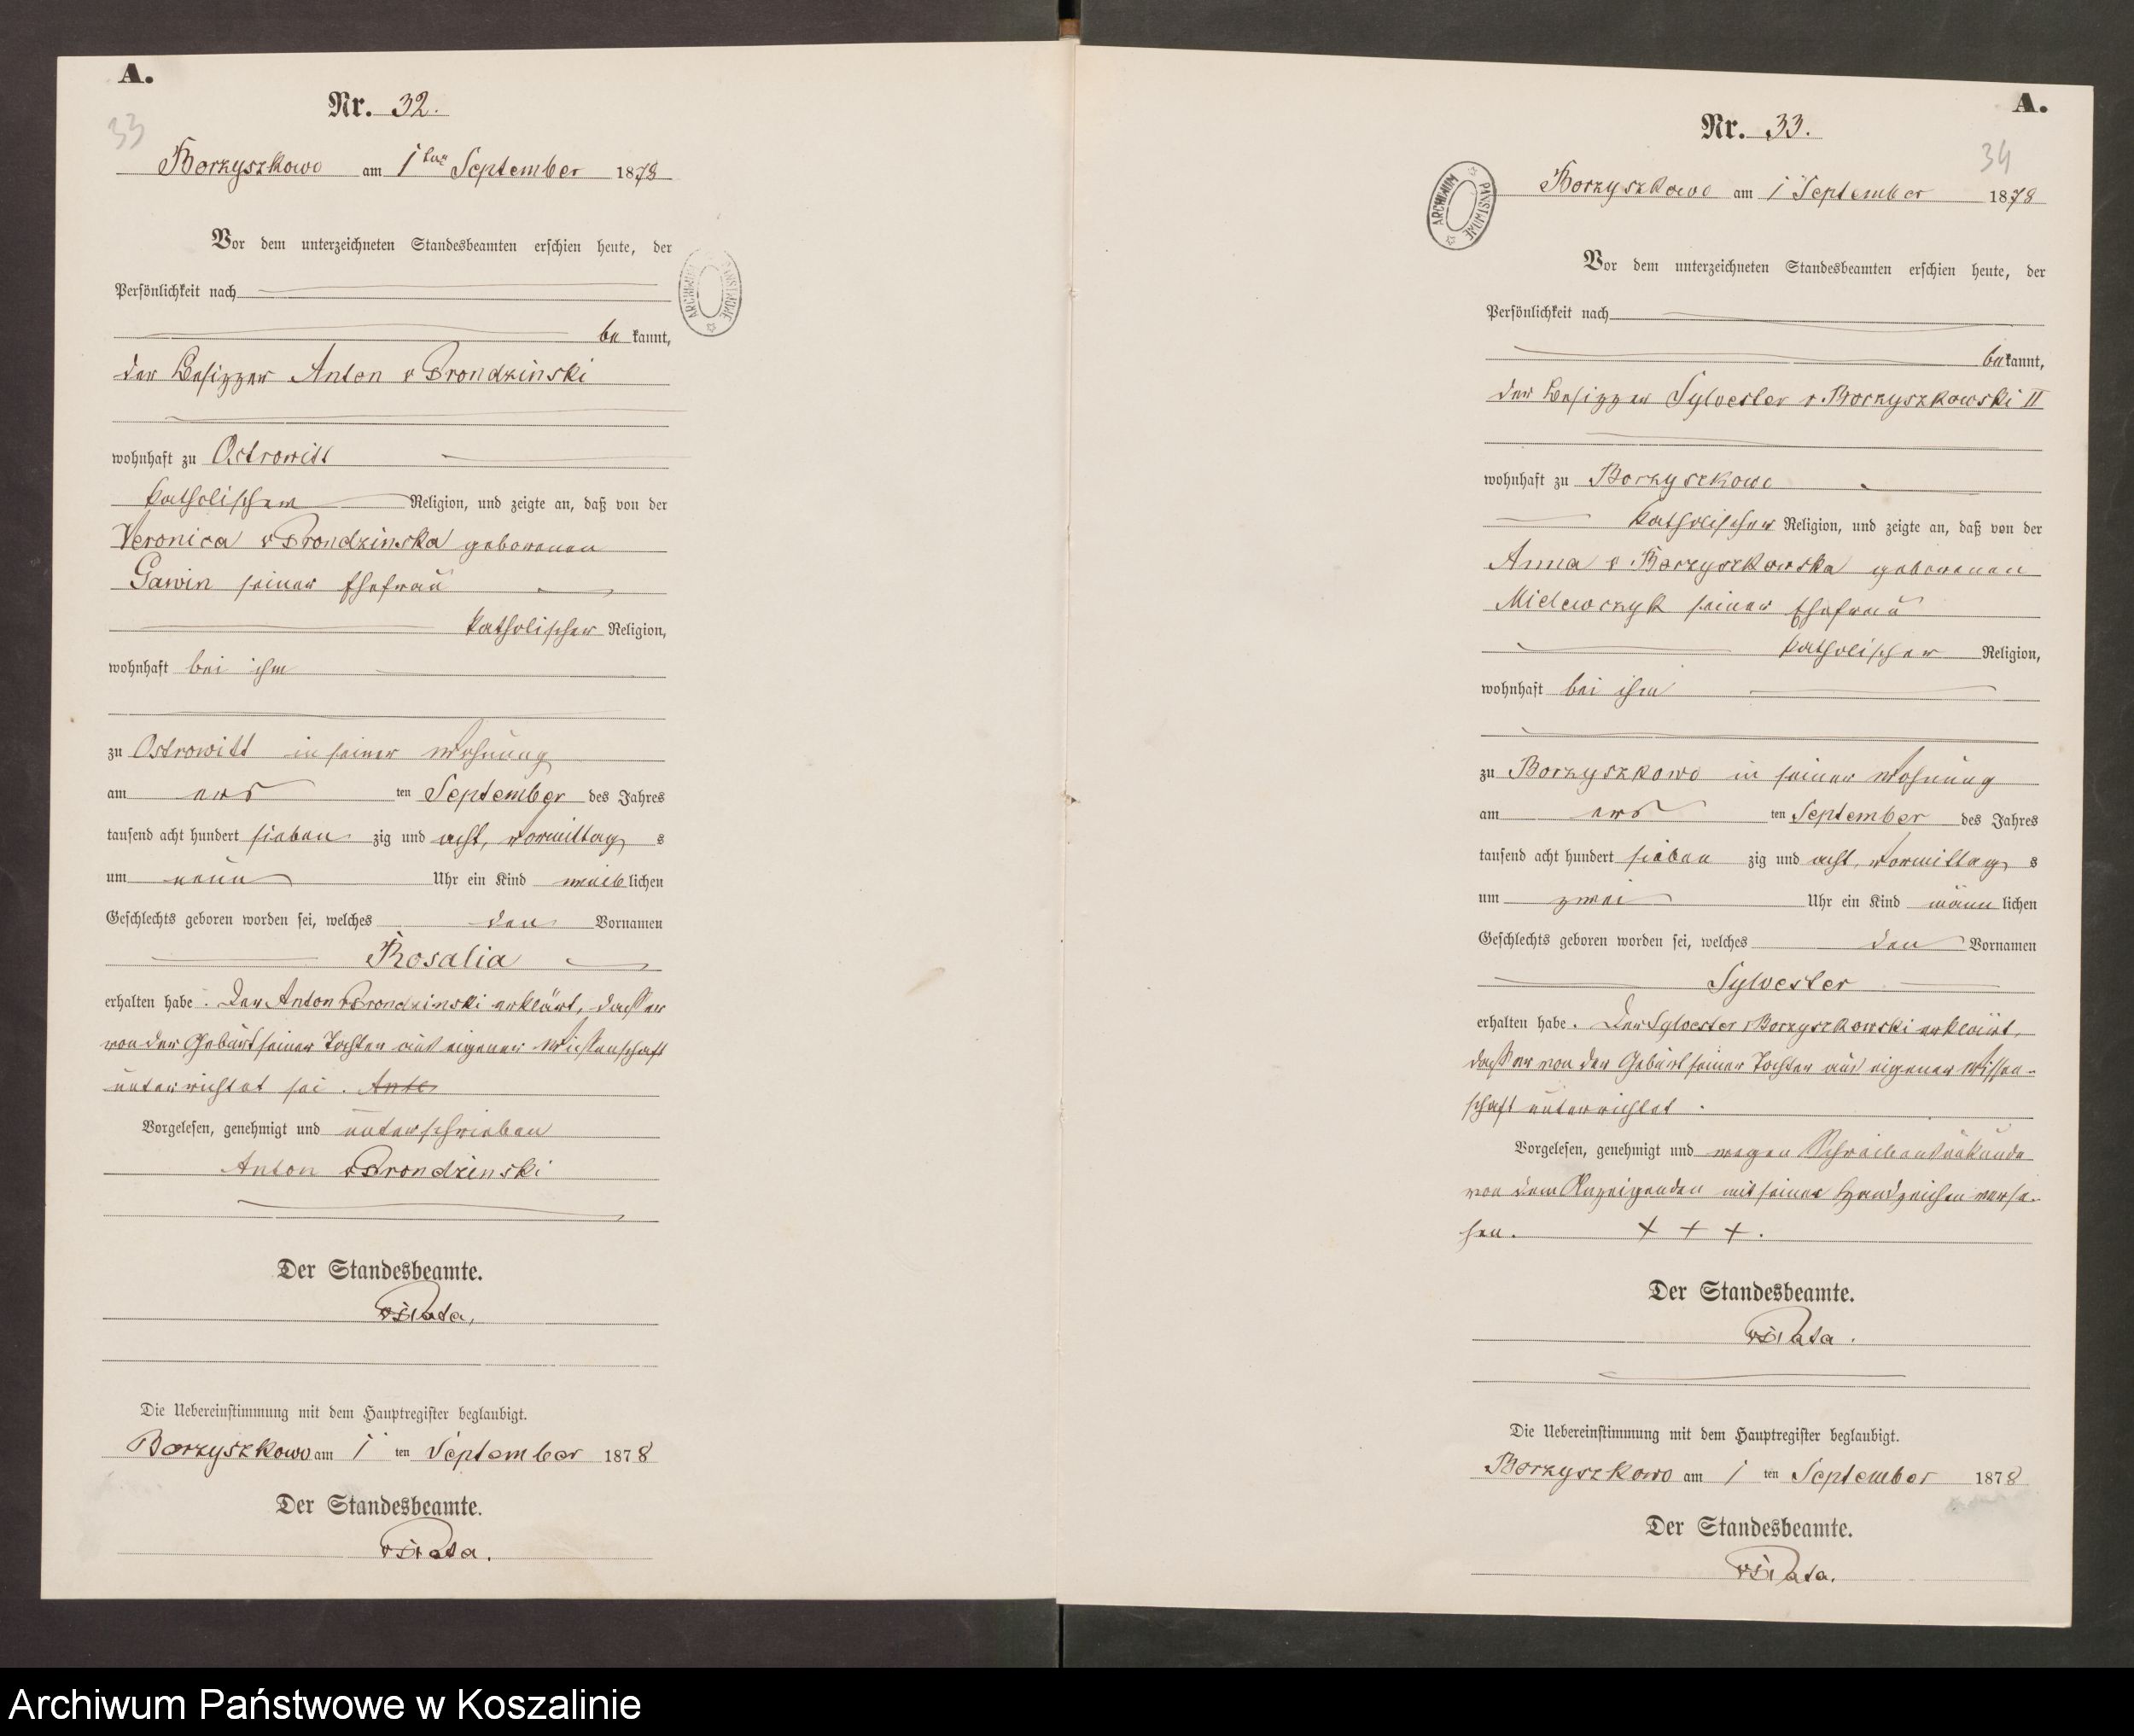 A.
33
Nr. 32.
Borzyszkowo am 1ten September 1878
Vor dem unterzeichneten Standesbeamten erschien heute, der
Persönlichkeit nach
be kannt,
der Besizzer Anton v Brondzinski
wohnhaft zu Ostrowitt
katholischer Religion, und zeigte an, daß von der
Veronica v Brondzinska geborenen
Gawin seiner Ehefrau
katholischer Religion,
wohnhaft bei ihm
zu Ostrowitt in seiner Wohnung
am ers ten September des Jahres
tausend acht hundert sieben zig und acht, vormittag s
um neun Uhr ein Kind weib lichen
Geschlechts geboren worden sei, welches den Vornamen
Rosalia
erhalten habe. Der Anton v Brondzinski erklärt, dass er
von der Geburt seiner Tochter aus eigener Wissenschaft
unterrichtet sei. Anto
Vorgelesen, genehmigt und unterschrieben
Anton v Brondzinski
Der Standesbeamte.
Die Uebereinstimmung mit dem Hauptregister beglaubigt.
Borzyszkowo am 1 ten September 1878
Der Standesbeamte.
A.
Nr. 33.
34
Borzyszkowo am 1 September 1878
ARCHIWUM PAŃSTWOWE
Vor dem unterzeichneten Standesbeamten erschien heute, der
Persönlichkeit nach
bekannt,
der Besizzer Sylvester v Borzyszkowski II
wohnhaft zu Borzyszkowo
katholischer Religion, und zeigte an, daß von der
Anna v Borzyszkowska geborenen
seiner Ehefrau
katholischer Religion,
wohnhaft bei ihm
zu Borzyszkowo in seiner Wohnung
am ers ten September des Jahres
tausend acht hundert sieben zig und acht, vormittag s
um zwei Uhr ein Kind männ lichen
Geschlechts geboren worden sei, welches den Vornamen
Sylvester
erhalten habe. Der Sylvester v Borzyszkowski erklärt,
dass er von der Geburt seiner Tochter aus eigener Wissen-
schaft unterrichtet.
Vorgelesen, genehmigt und wegen Schreibensunkunde
von dem Anzeigenden mit seinem Handzeichen verse-
hen. + + +.
Der Standesbeamte.
Die Uebereinstimmung mit dem Hauptregister beglaubigt.
Borzyszkowo am 1 ten September 1878
Der Standesbeamte.
Archiwum Państwowe w Koszalinie